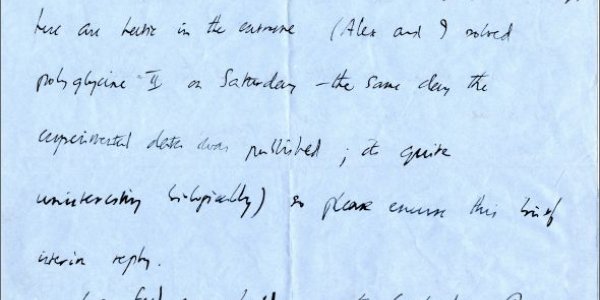 here are hectic in the extreme (Alex and I solved
polyglycine II on Saturday - the same day the
experimental data was published ; its quite
uninteresting biologically) so please excuse this brief
interim reply.